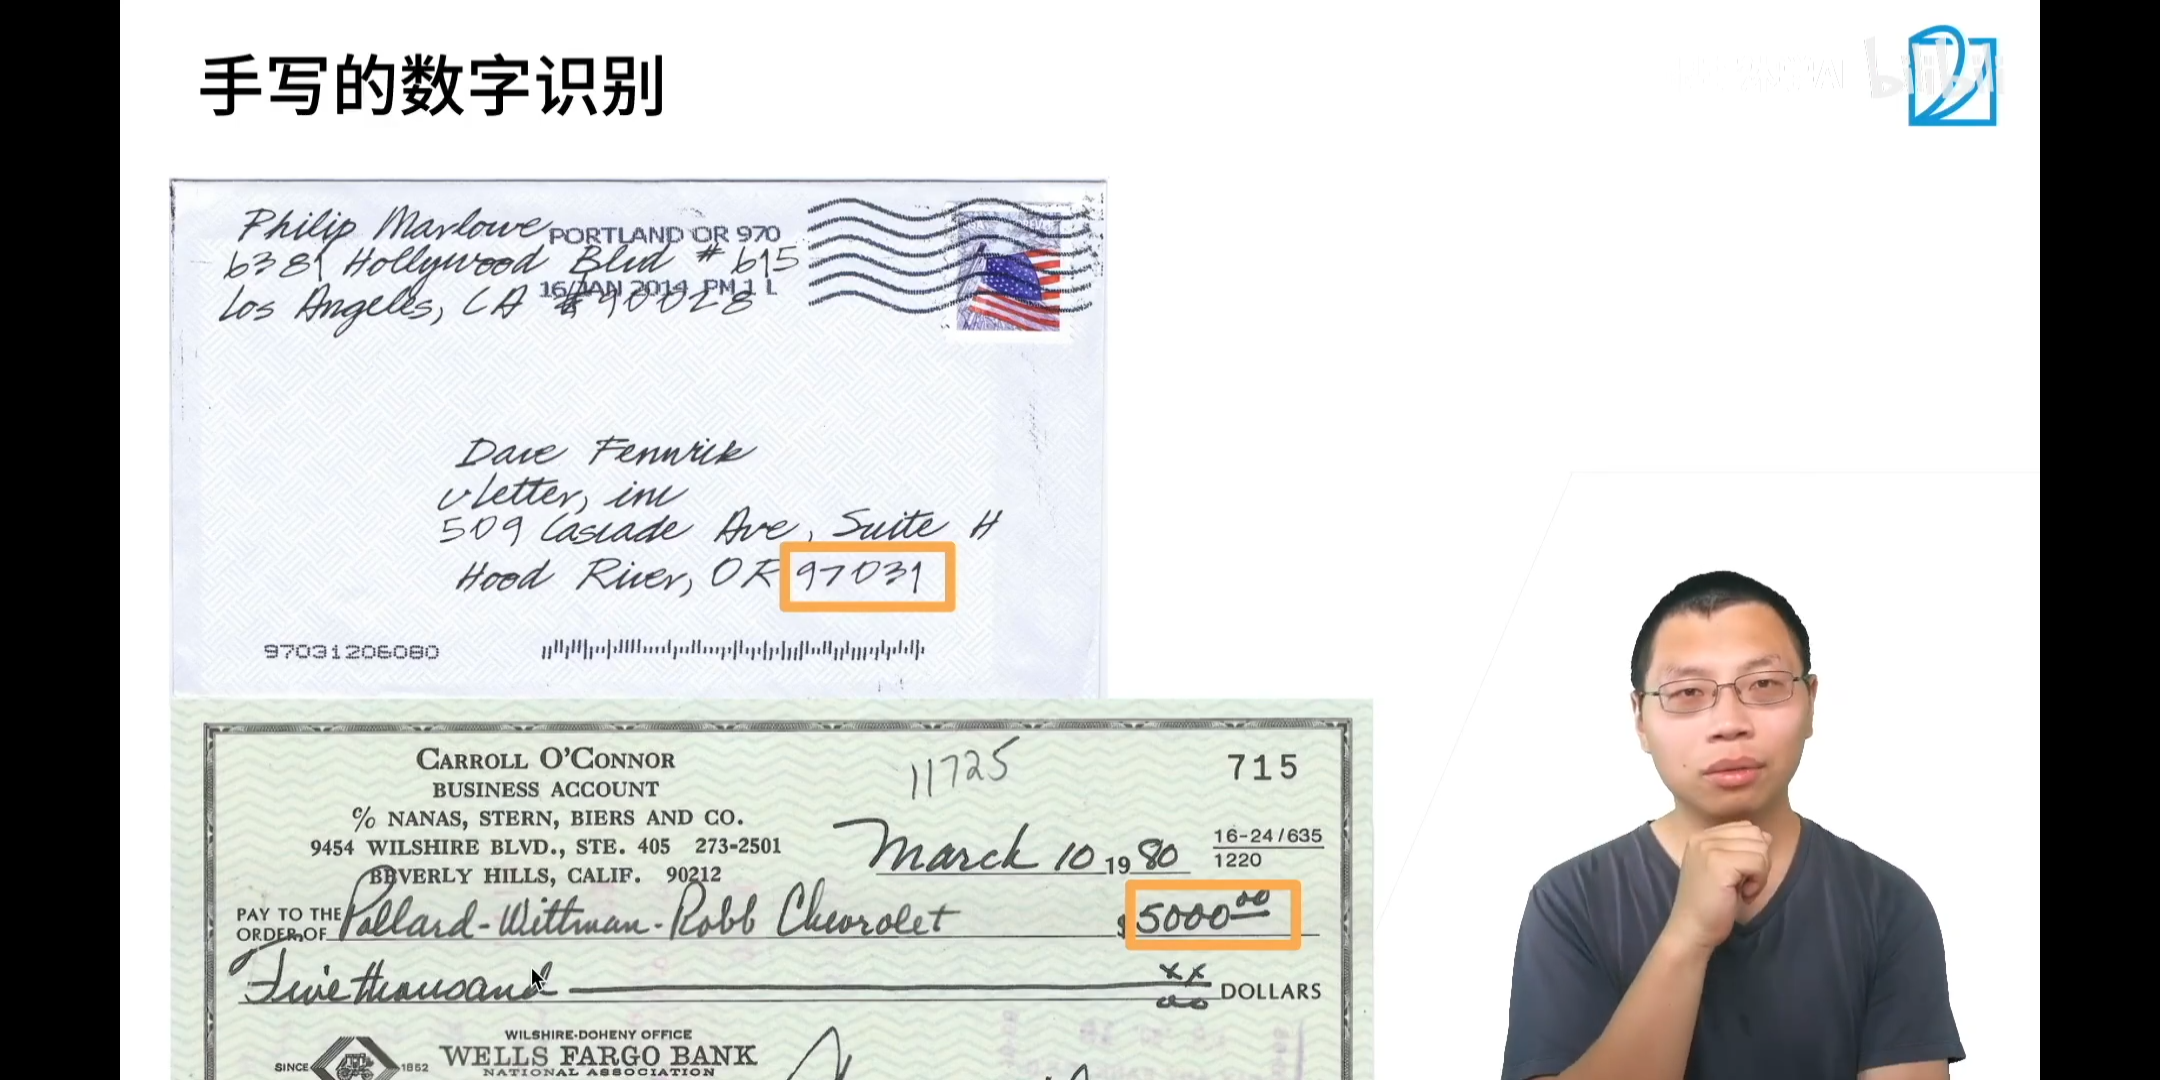 手写的数字识别
bilibili
Philip Marlowe
PORTLAND OR 970
6381 Hollywood Blvd # 615
16 JAN 2014 PM 1 L
Los Angeles, CA 90028
Dave Fennrik
vLetter, inc
509 Cascade Ave, Suite H
Hood River, OR 97031
97031206080
CARROLL O'CONNOR
BUSINESS ACCOUNT
% NANAS, STERN, BIERS AND CO.
9454 WILSHIRE BLVD., STE. 405 273-2501
BEVERLY HILLS, CALIF. 90212
11725
715
March 10 1980
16-24/635
1220
PAY TO THE
ORDER OF Pollard-Wittman-Robb Chevrolet $5000 00
Five thousand xx
00 DOLLARS
WILSHIRE-DOHENY OFFICE
WELLS FARGO BANK
SINCE 1852
NATIONAL ASSOCIATION